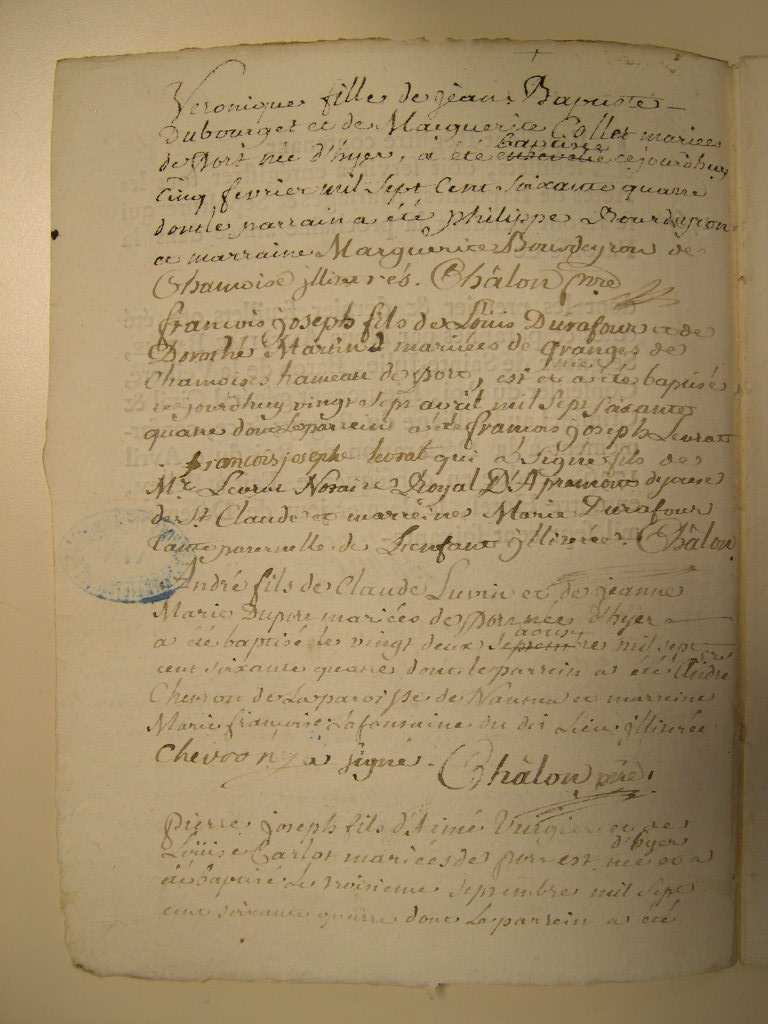 Veronique fille de jean Baptiste
Dubourget et de Marguerite Collet mariees
baptisée
de Port née d'hyer, a été cejourdhuy
Cinq fevrier mil sept Cent soixante quatre
dont le parrain a été philippe Bourdeyron
et marraine Marguerite Bourdeyron de
Chamoise illitérés. Châlon ptre
francois joseph fils de Loüis Durafour et de
Dorothé Martin mariées de granges de
hier
Chamoise hameau de port, est et a été baptisé
cejourdhuy vingt sept avril mil sept soixante
quatre dont le parrein a été francois joseph Levrat
francois joseph levrat qui a signé fils de
Mr. Levrat Notaire Royal D'Apremont dyocese
de St Claude et marreine Marie Durafour
tante paternelle de Lenfant illitérée. Châlon
André fils de Claude Luvin et de jeanne
Marie Dupont mariées de port née d'hyer
aoust
a été baptisé le vingt deux septembre mil sept
cent soixante quatre dont le parrein a été André
Chevron de La paroisse de Nantua et marreine
Marie francoise Lafontaine du dit Lieu illitérée
Chevron a signé. Châlon ptre.
Pierre joseph fils d'Aimé et de
d'hyer
Loüise Carlot mariées de port est née et a
été baptisé Le troisieme septembre mil sept
cent soixante quatre dont Le parrein a été